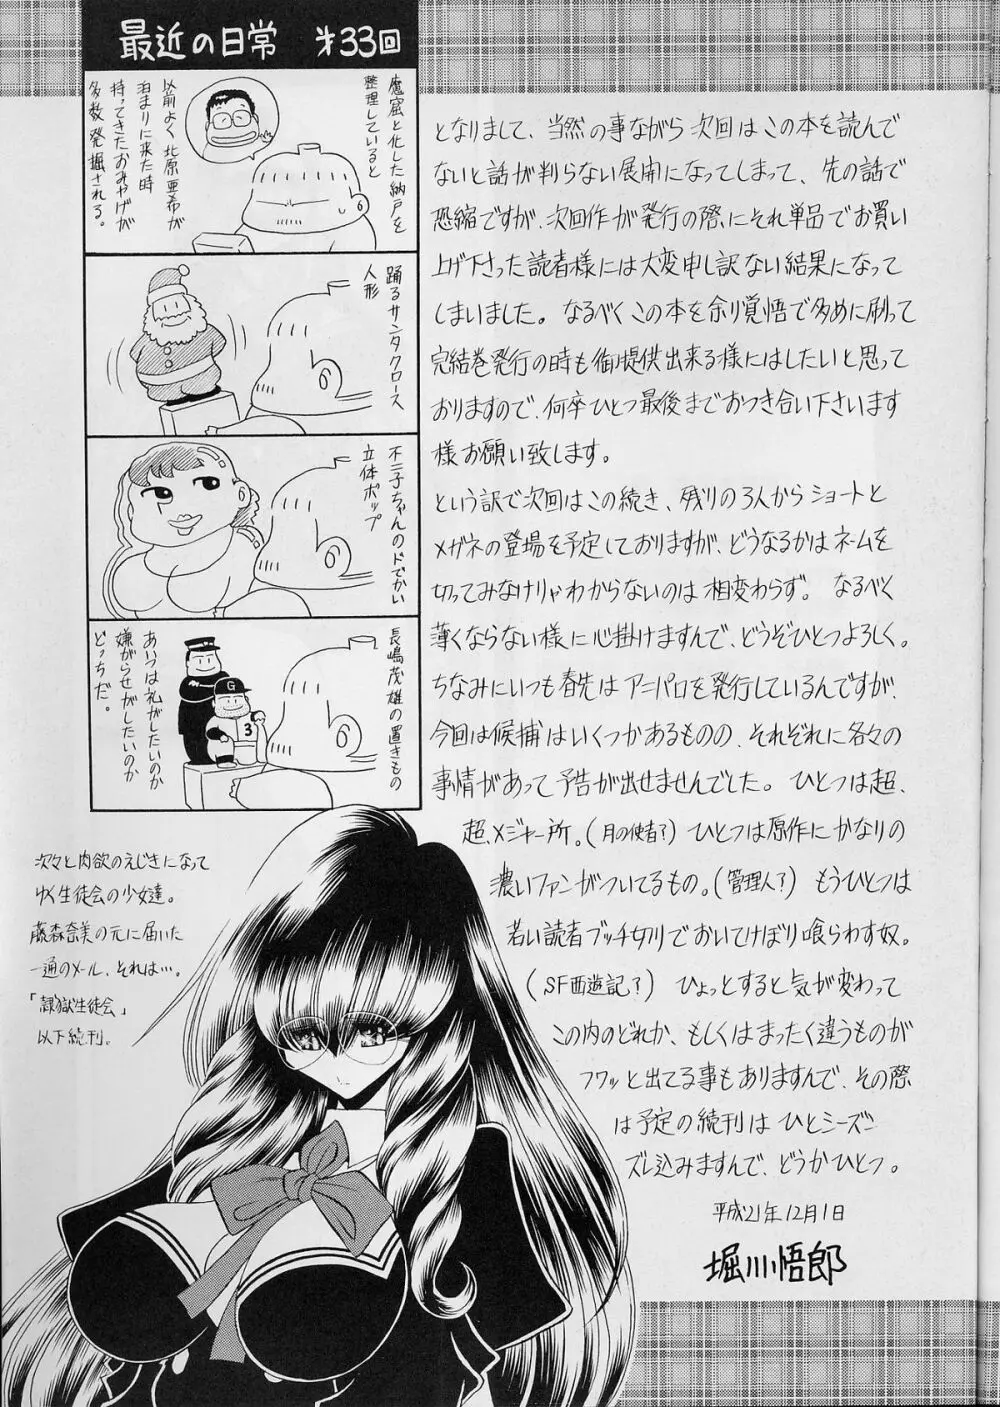 最近の日常 才33回
魔窟と化した納戸を
整理していると
以前よく、北原亜希が
泊まりに来た時
持ってきたおみやげが
多数発掘される。
踊るサンタクロース
人形
不二子ちゃんのドでかい
立体ポップ
長嶋茂雄の置きもの
G
3
あいつは礼がしたいのか
嫌がらせがしたいのか
どっちだ。
となりまして、当然の事ながら次回はこの本を読んで
ないと話が判らない展開になってしまって、先の話で
恐縮ですが、次回作が発行の際にそれ単品でお買い
上げ下さった読者様には大変申し訳ない結果になって
しまいました。なるべくこの本を余り覚悟で多めに刷って
完結巻発行の時も御提供出来る様にはしたいと思って
おりますので、何卒ひとつ最後までおつき合い下さいます
様お願い致します。
という訳で次回はこの続き、残りの3人からショートと
メガネの登場を予定しておりますが、どうなるかはネームを
切ってみなけりゃわからないのは相変わらず。なるべく
薄くならない様に心掛けますんで、どうぞひとつよろしく。
ちなみにいつも春先はアニパロを発行しているんですが、
今回は候補はいくつかあるものの、それぞれに各々の
事情があって予告が出せませんでした。ひとつは超、
超、メジャー所。(月の使者?)ひとつは原作にかなりの
濃いファンがついてるもの。(管理人?)もうひとつは
若い読者ブッチ切りでおいてけぼり喰らわす奴。
(SF西遊記?)ひょっとすると気が変わって
この内のどれか、もしくはまったく違うものが
フワッと出てる事もありますんで、その際
は予定の続刊はひとシーズン
ズレ込みますんで、どうかひとつ。
平成21年12月1日
堀川悟郎
次々と肉欲のえじきになって
ゆく生徒会の少女達。
藤森奈美の元に届いた
一通のメール、それは…。
「隷獄生徒会」
以下続刊。